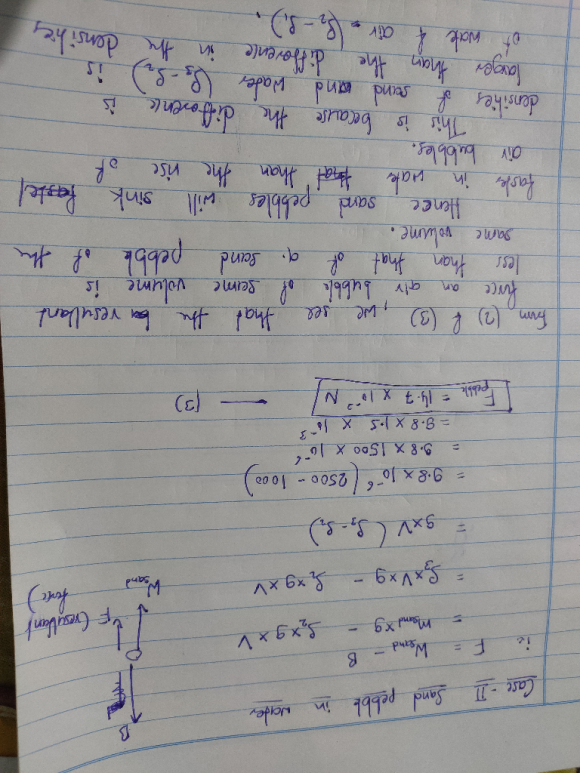 Case-II Sand pebble in water
i.e F = Wsand - B
= msand×g - ρ₂×g×V
= ρ₃×V×g - ρ₂×g×V
= g×V (ρ₃-ρ₂)
= 9.8×10⁻⁶ (2500 - 1000)
= 9.8 × 1500 × 10⁻⁶
= 9.8 × 1.5 × 10⁻³
Fpebble = 14.7 × 10⁻³ N — (3)
B
F (resultant
force)
Wsand
from (2) & (3), we see that the resultant
force an air bubble of same volume is
less than that of a sand pebble of the
same volume.
Hence sand pebbles will sink faster
in water than the rise of
air bubbles.
This is because the difference is
densities of sand and water (ρ₃-ρ₂) is
larger than the difference in the densities
of water & air = (ρ₂-ρ₁).